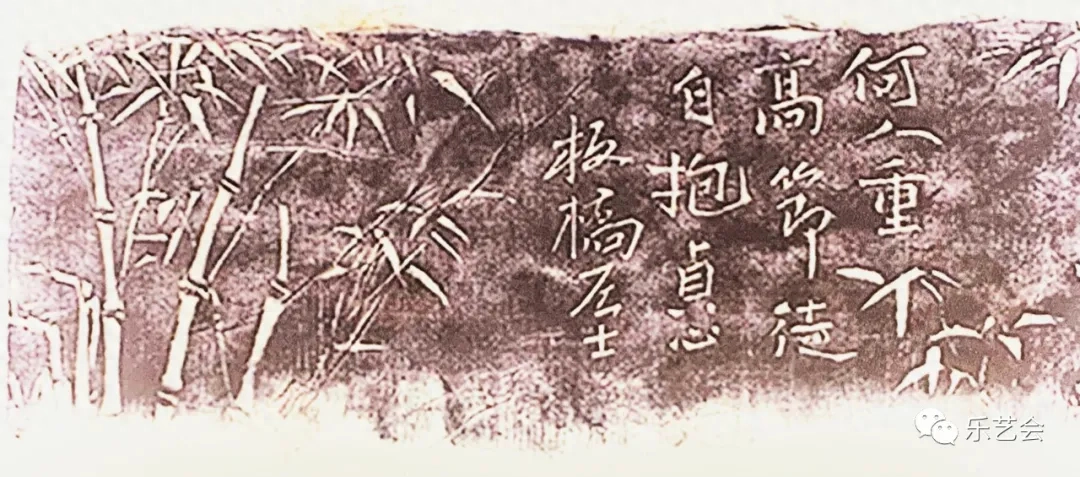 何人重
高節徒
自抱貞心
板橋居士
乐艺会